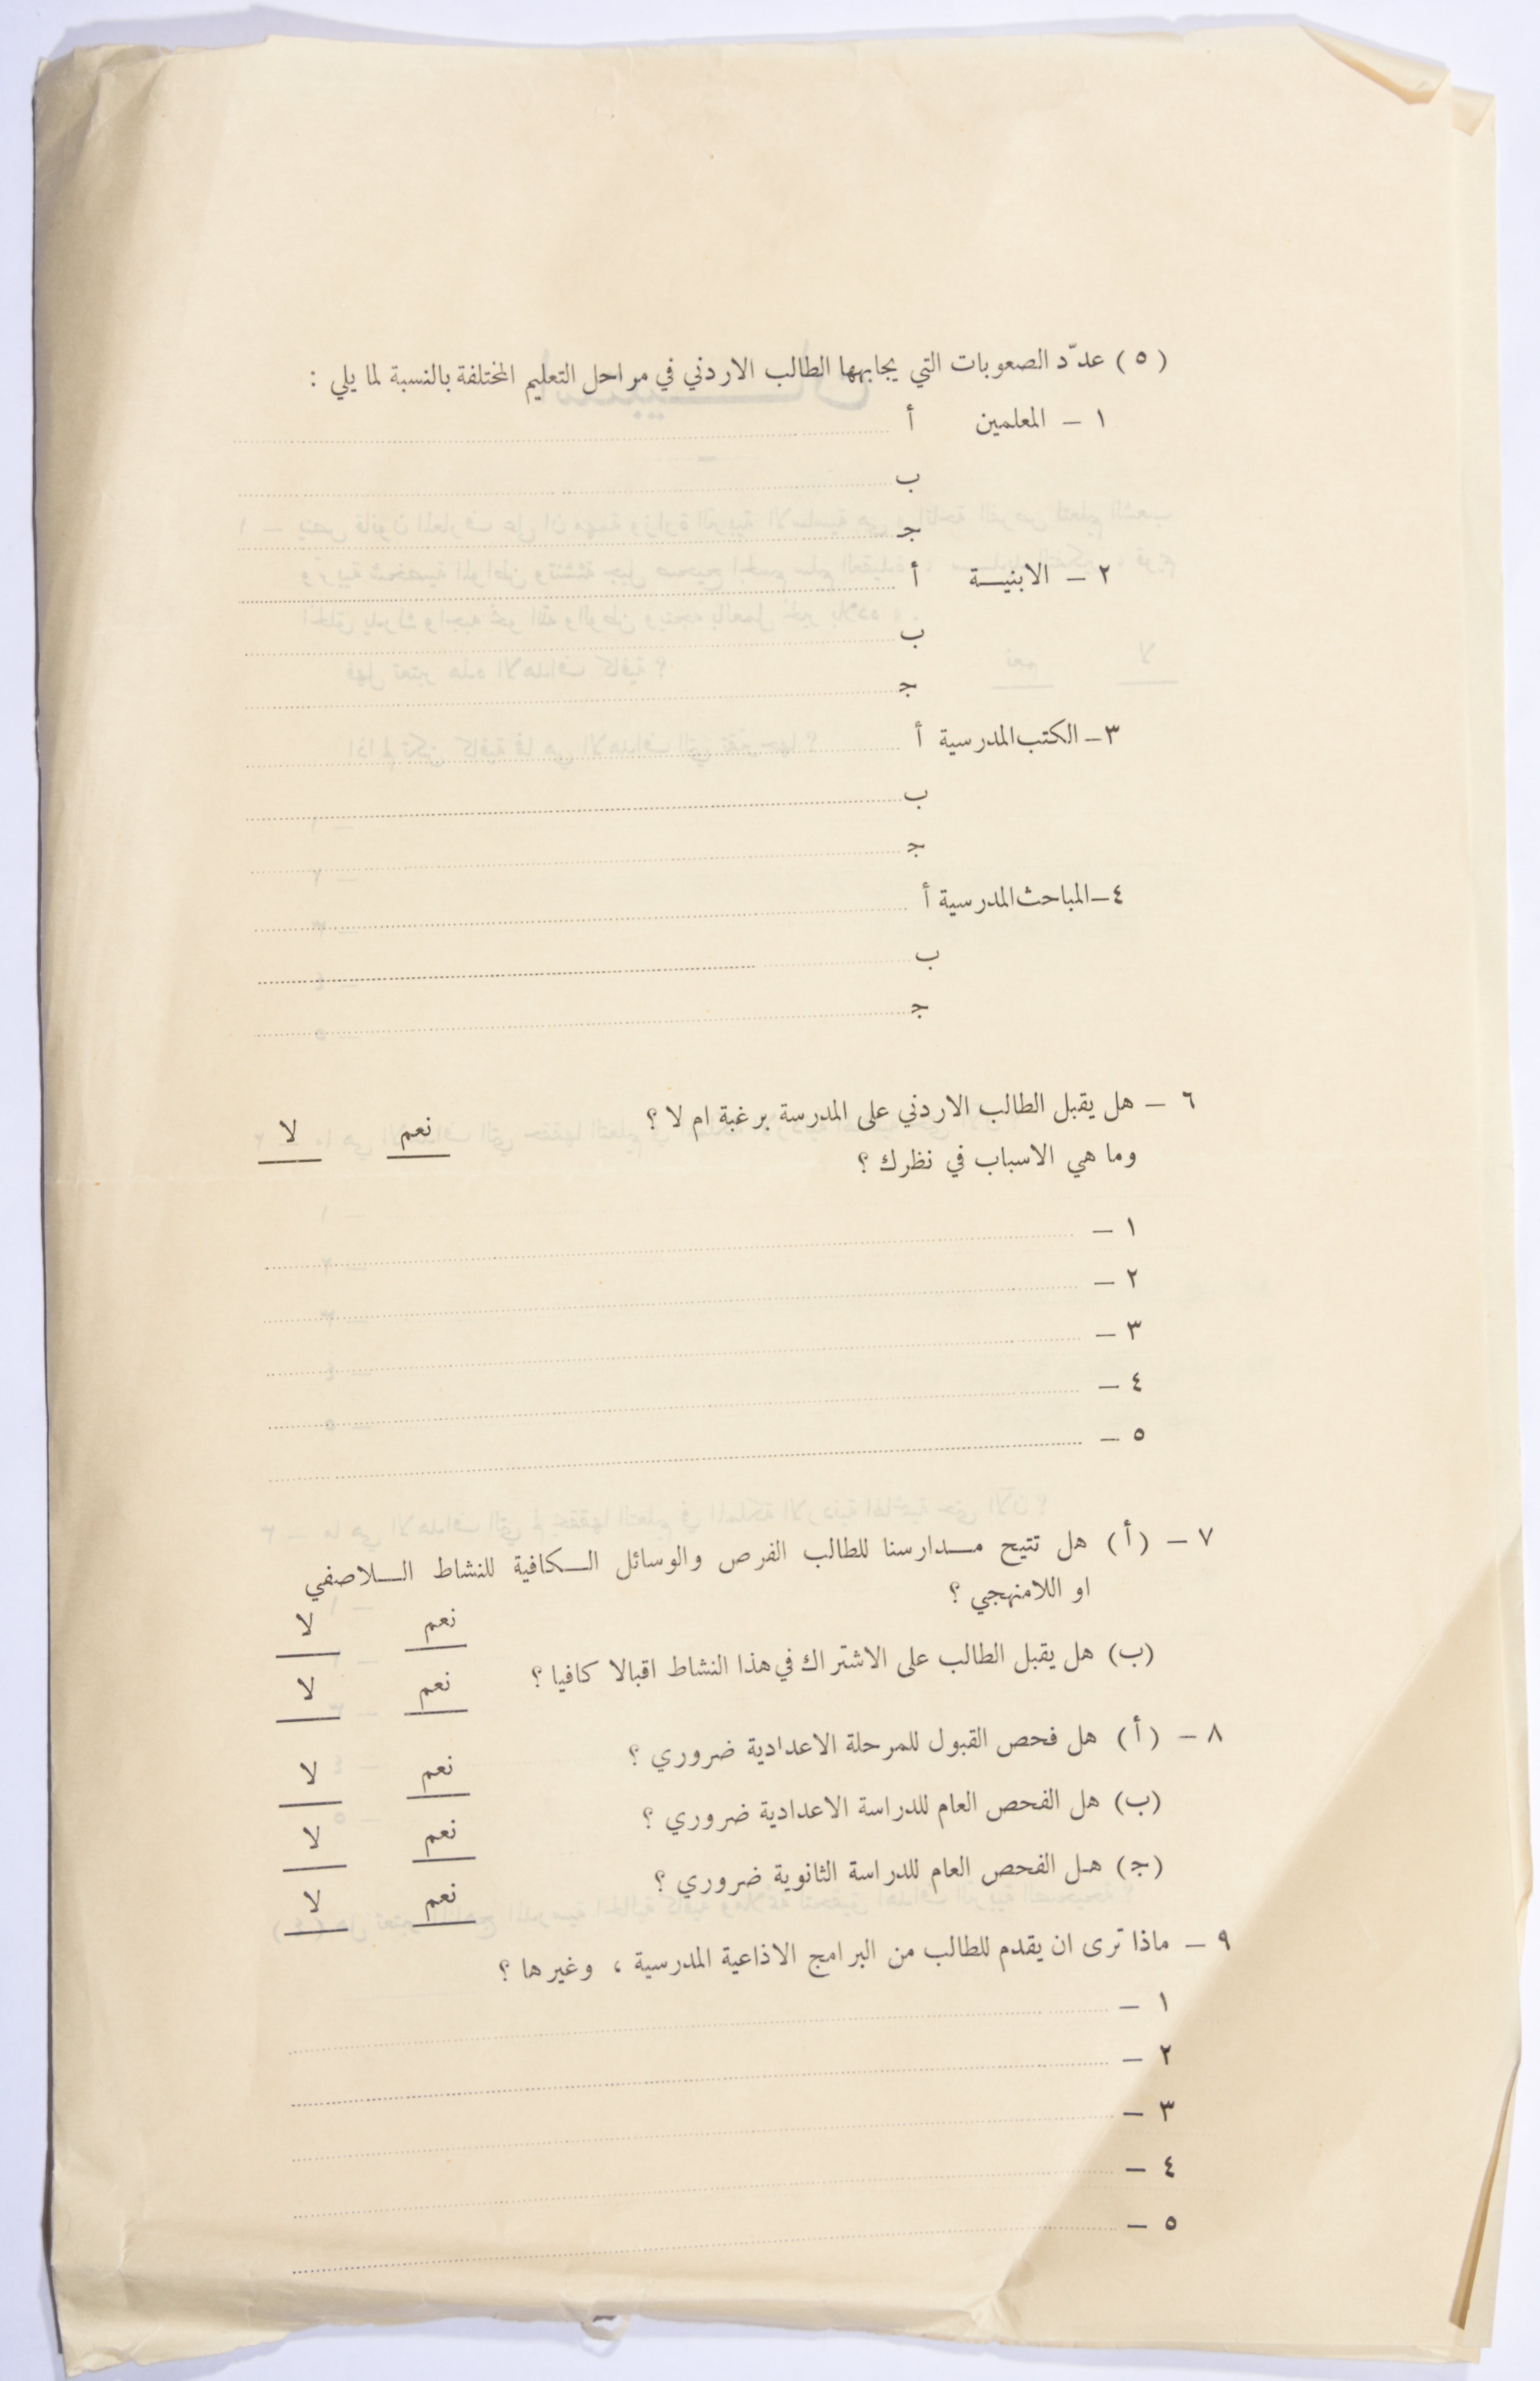 ( ٥ ) عدّد الصعوبات التي يجابهها الطالب الاردني في مراحل التعليم المختلفة بالنسبة لما يلي :
١ – المعلمين أ
ب
جـ
٢ – الابنيـــة أ
ب
جـ
٣ – الكتب المدرسية أ
ب
جـ
٤ – المباحث المدرسية أ
ب
جـ
٦ – هل يقبل الطالب الاردني على المدرسة برغبة ام لا ؟ نعم لا
وما هي الاسباب في نظرك ؟
١ –
٢ –
٣ –
٤ –
٥ –
٧ – (أ) هل تتيح مــدارسنا للطالب الفرص والوسائل الــكافية للنشاط الــلاصفي
او اللامنهجي ؟ نعم لا
(ب) هل يقبل الطالب على الاشتراك في هذا النشاط اقبالا كافيا ؟ نعم لا
٨ – (أ) هل فحص القبول للمرحلة الاعدادية ضروري ؟ نعم لا
(ب) هل الفحص العام للدراسة الاعدادية ضروري ؟ نعم لا
(جـ) هـل الفحص العام للدراسة الثانوية ضروري ؟ نعم لا
٩ – ماذا ترى ان يقدم للطالب من البرامج الاذاعية المدرسية ، وغيرها ؟
١ –
٢ –
٣ –
٤ –
٥ –